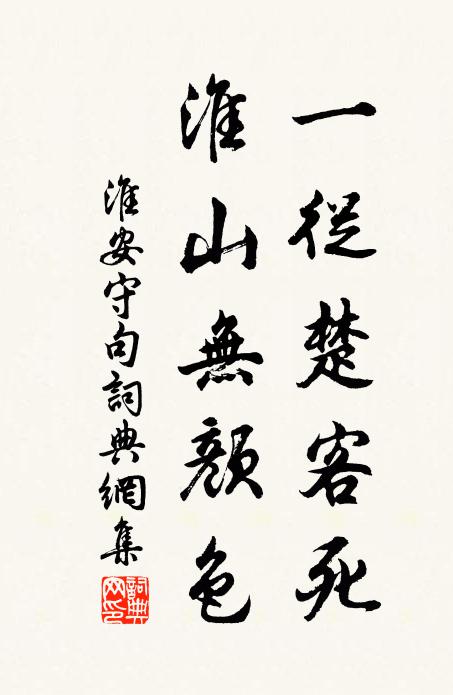 一從楚客死
淮山無顏色
淮安守句詞典網集
詞典
网印